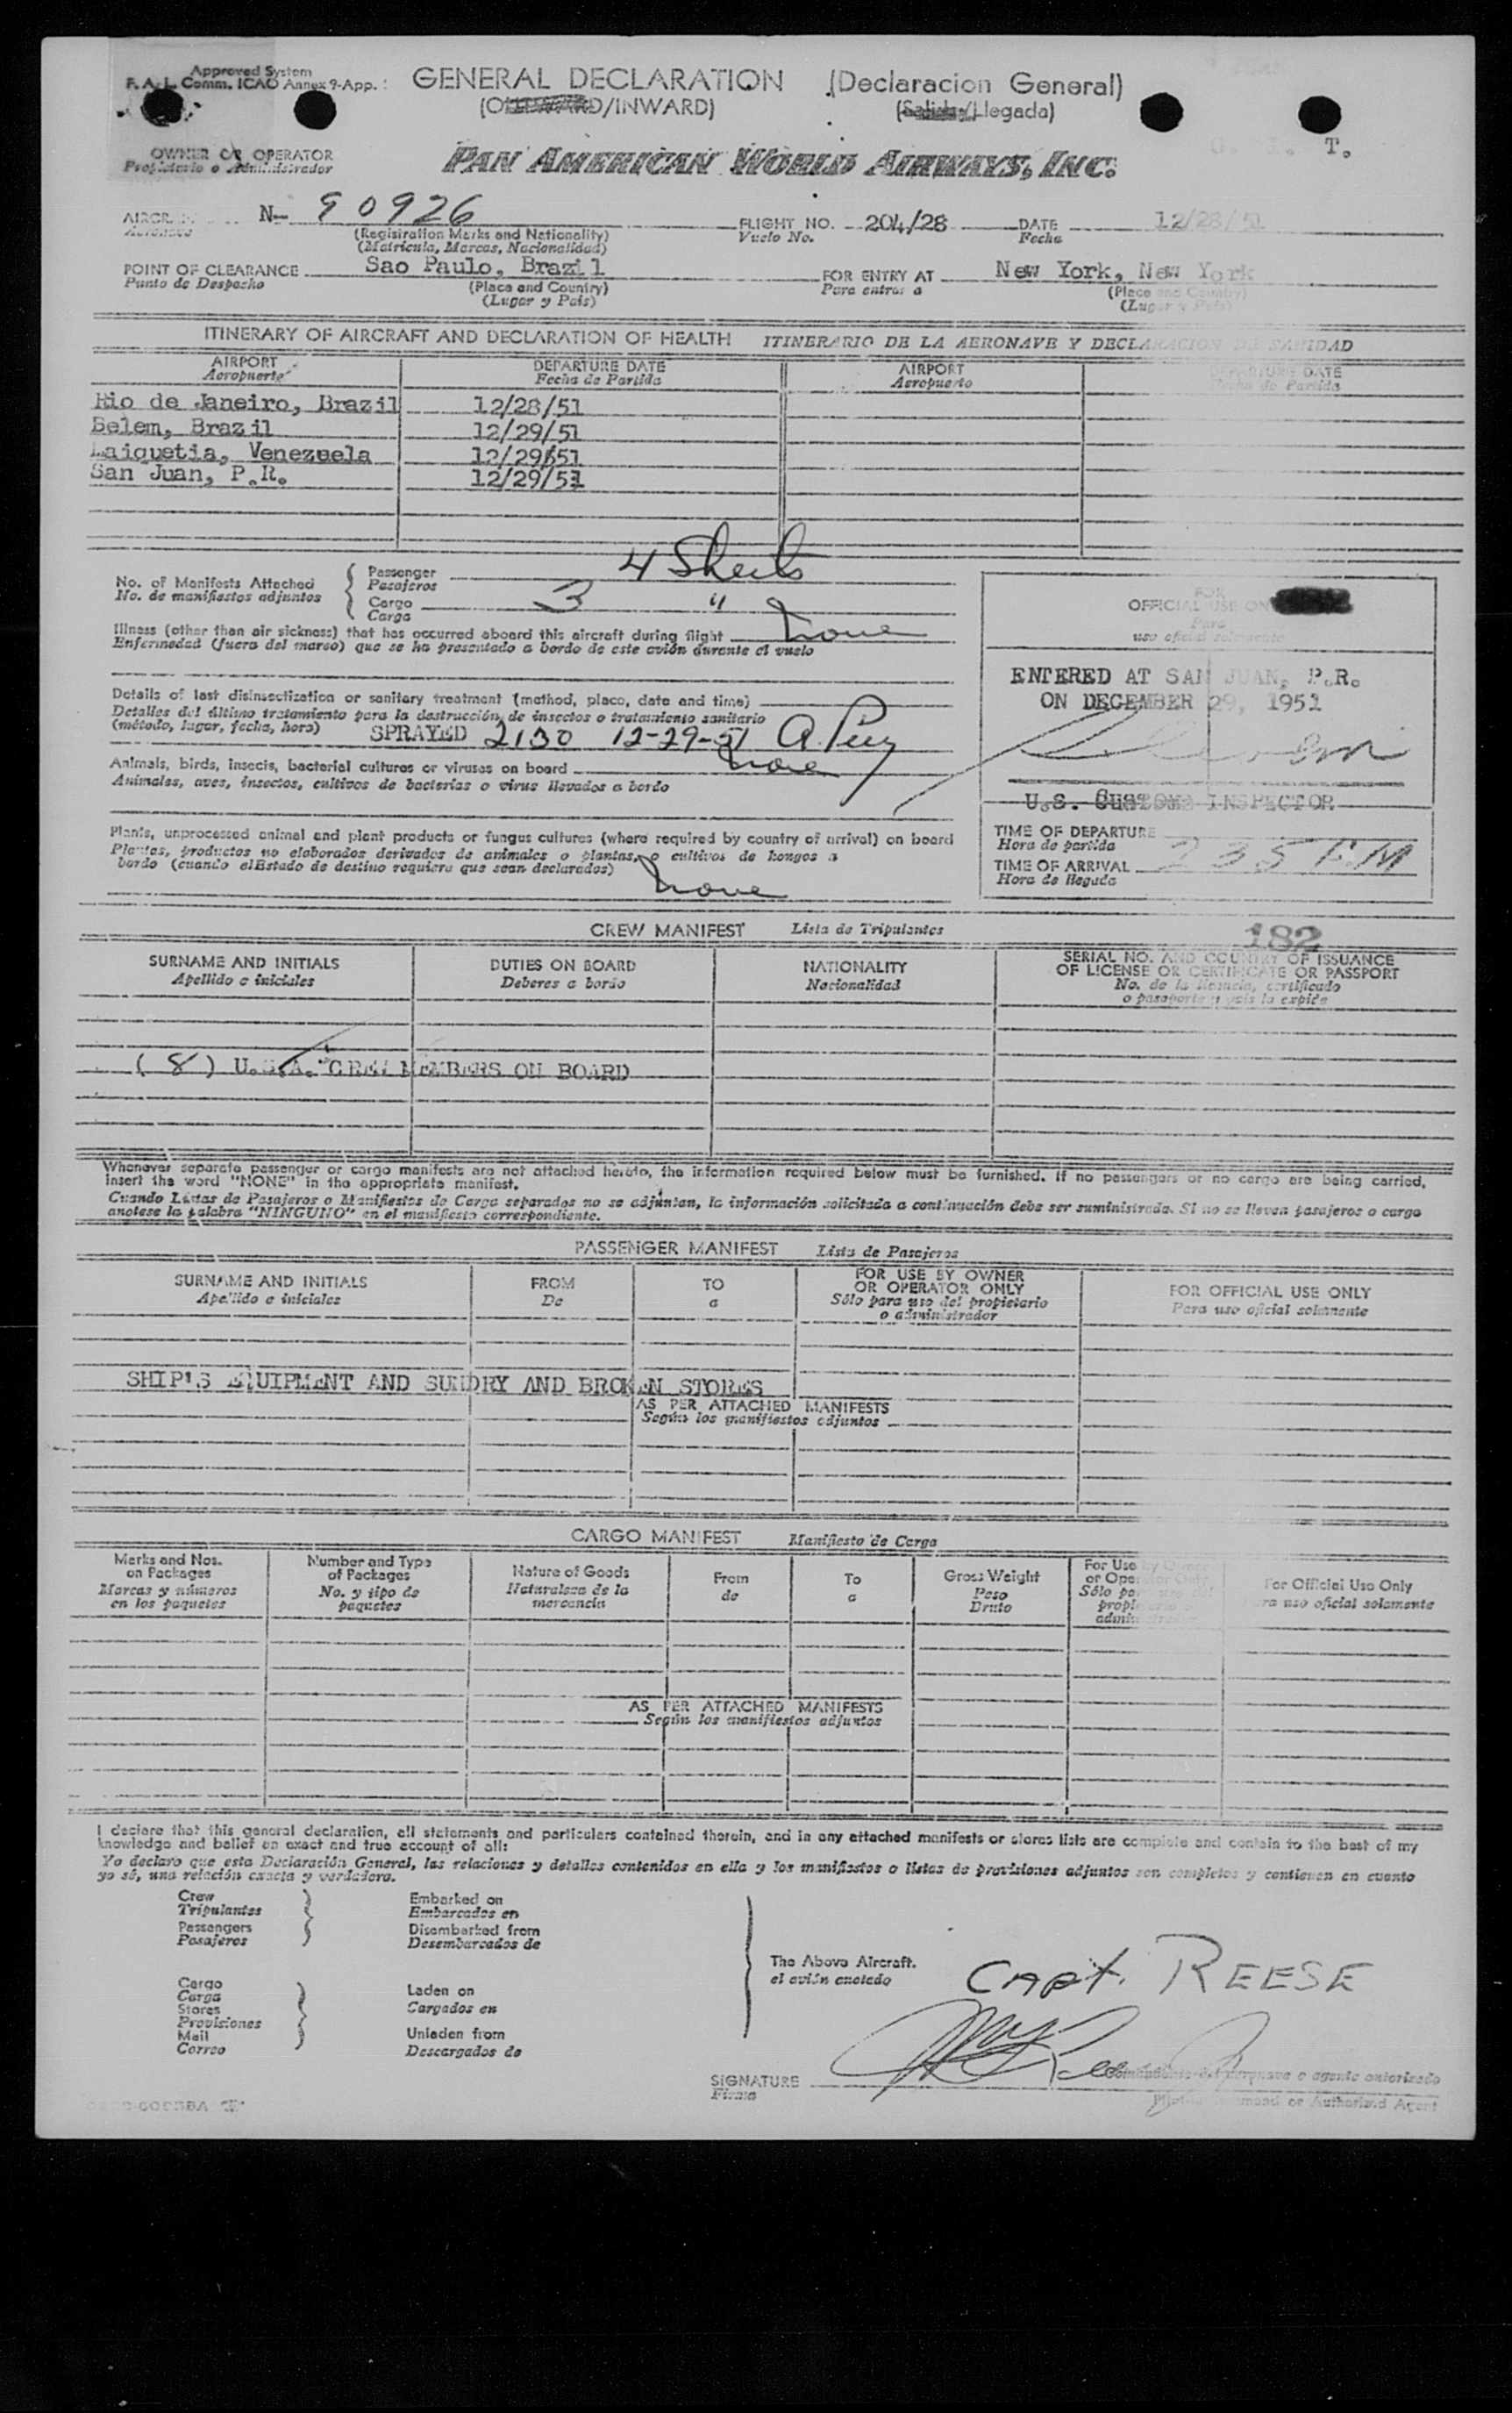 Approved System
F. A. L. Comm. ICAO Annex 9-App. 1
GENERAL DECLARATION (Declaracion General)
(OUTWARD/INWARD) (Salida/Llegada)
T.
OWNER OR OPERATOR
Propietario o Administrador
PAN AMERICAN WORLD AIRWAYS, INC.
AIRCRAFT N- 90926 FLIGHT NO. 204/28 DATE 12/28/51
Aeronave (Registration Marks and Nationality) Vuelo No. Fecha
(Matricula, Marcas, Nacionalidad)
POINT OF CLEARANCE Sao Paulo, Brazil FOR ENTRY AT New York, New York
Punto de Despacho (Place and Country) Para entrar a (Place and Country)
(Lugar y Pais) (Lugar y Pais)
ITINERARY OF AIRCRAFT AND DECLARATION OF HEALTH ITINERARIO DE LA AERONAVE Y DECLARACION DE SANIDAD
AIRPORT DEPARTURE DATE AIRPORT DEPARTURE DATE
Aeropuerto Fecha de Partida Aeropuerto Fecha de Partida
Rio de Janeiro, Brazil 12/28/51
Belem, Brazil 12/29/51
Maiquetia, Venezuela 12/29/51
San Juan, P.R. 12/29/51
No. of Manifests Attached
No. de manifiestos adjuntos
Passenger 4 Sheets
Pasajeros
Cargo 3 "
Carga
Illness (other than air sickness) that has occurred aboard this aircraft during flight None
Enfermedad (fuera del mareo) que se ha presentado a bordo de este avión durante el vuelo
Details of last disinsectization or sanitary treatment (method, place, date and time)
Detalles del último tratamiento para la destrucción de insectos o tratamiento sanitario
(método, lugar, fecha, hora) SPRAYED 2130 12-29-51
Animals, birds, insects, bacterial cultures or viruses on board None
Animales, aves, insectos, cultivos de bacterias o virus llevados a bordo
Plants, unprocessed animal and plant products or fungus cultures (where required by country of arrival) on board
Plantas, productos no elaborados derivados de animales o plantas, o cultivos de hongos a
bordo (cuando elEstado de destino requiera que sean declarados)
None
FOR
OFFICIAL USE ONLY
Para
uso oficial solamente
ENTERED AT SAN JUAN, P.R.
ON DECEMBER 29, 1951
U.S. CUSTOMS INSPECTOR
TIME OF DEPARTURE
Hora de partida
TIME OF ARRIVAL 235 PM
Hora de llegada
CREW MANIFEST Lista de Tripulantes 182
SURNAME AND INITIALS DUTIES ON BOARD NATIONALITY SERIAL NO. AND COUNTRY OF ISSUANCE
OF LICENSE OR CERTIFICATE OR PASSPORT
Apellido e iniciales Deberes a bordo Nacionalidad No. de la licencia, certificado
o pasaporte y pais la expide
( 8 ) U.S.A. CREW MEMBERS ON BOARD
Whenever separate passenger or cargo manifests are not attached hereto, the information required below must be furnished. If no passengers or no cargo are being carried,
insert the word "NONE" in the appropriate manifest.
Cuando Listas de Pasajeros o Manifiestos de Carga separados no se adjuntan, la información solicitada a continuación debe ser suministrada. Si no se llevan pasajeros o cargo
anotese la palabra "NINGUNO" en el manifiesto correspondiente.
PASSENGER MANIFEST Lista de Pasajeros
SURNAME AND INITIALS FROM TO FOR USE BY OWNER
OR OPERATOR ONLY FOR OFFICIAL USE ONLY
Apellido e iniciales De a Sólo para uso del propietario
o administrador Para uso oficial solamente
SHIP'S EQUIPMENT AND SUNDRY AND BROKEN STORES
AS PER ATTACHED MANIFESTS
Según los manifiestos adjuntos
CARGO MANIFEST Manifiesto de Carga
Marks and Nos.
on Packages
Marcas y números
en los paquetes
Number and Type
of Packages
No. y tipo de
paquetes
Nature of Goods
Naturaleza de la
mercancia
From
de
To
a
Gross Weight
Peso
Bruto
For Use by Owner
or Operator Only
Sólo para uso del
propietario o
administrador
For Official Use Only
Para uso oficial solamente
AS PER ATTACHED MANIFESTS
Según los manifiestos adjuntos
I declare that this general declaration, all statements and particulars contained therein, and in any attached manifests or stores lists are complete and contain to the best of my
knowledge and belief an exact and true account of all:
Yo declaro que esta Declaración General, las relaciones y detalles contenidos en ella y los manifiestos o listas de provisiones adjuntos son completos y contienen en cuanto
yo sé, una relación exacta y verdadera.
Crew
Tripulantes
Passengers
Pasajeros
Embarked on
Embarcados en
Disembarked from
Desembarcados de
Cargo
Carga
Stores
Provisiones
Mail
Correo
Laden on
Cargados en
Unladen from
Descargados de
The Above Aircraft.
el avión anotado
CAPT. REESE
SIGNATURE
Firma
Comandante del aeronave o agente autorizado
Pilot in Command or Authorized Agent